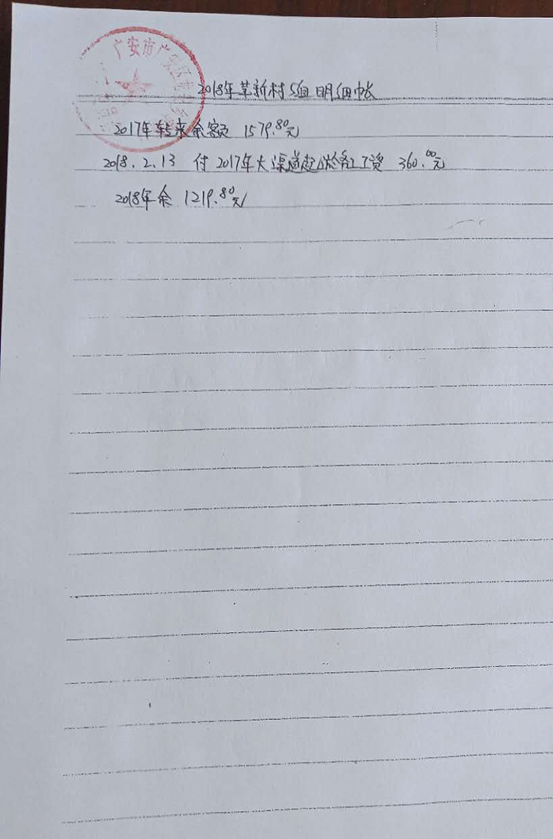 广安市广安区
2018年革新村5组明细帐
2017年转来余额 1579.80元
2018.2.13 付2017年大渠道 工资 360.00元
2018年余 1219.80元